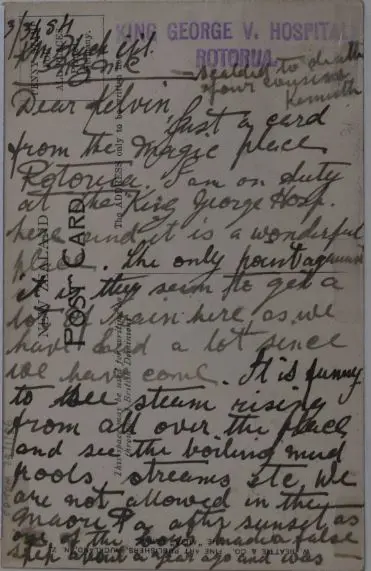 KING GEORGE V. HOSPITAL
ROTORUA.
scalded to death
your cousin
Kenneth
Dear Kelvin,
Just a card
from the Magic place
Rotorua. I am on duty
at the King George Hosp.
here and it is a wonderful
place. The only point against
it is they seem to get a
lot of rain here as we
have had a lot since
we have come. It is funny
to see steam rising
from all over the place
and see the boiling mud
pools, streams etc. We
are not allowed in the
Maori Pa after sunset as
one of the boys made a false
step about a year ago and was
NEW ZEALAND
POST CARD
The ADDRESS only to be written
This space may be used for
FINE ART PUBLISHERS, AUCKLAND, N.Z.